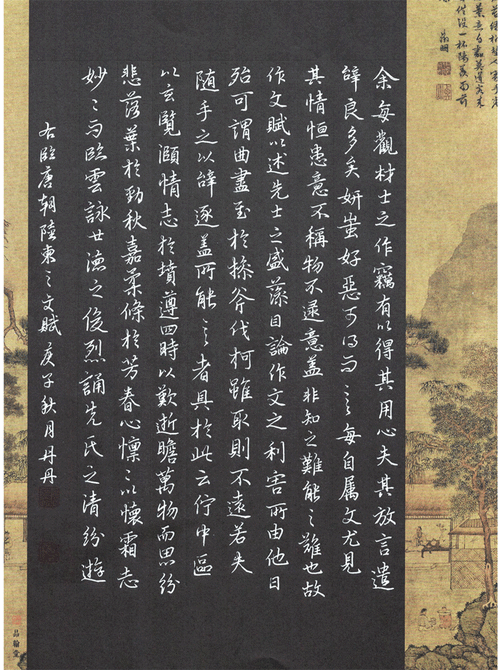 余每觀材士之作竊有以得其用心夫其放言遣
辭良多矣妍蚩好惡可得而言每自属文尤見
其情恒患意不稱物不逮意盖非知之難能之難也故
作文賦以述先士之盛藻因論作文之利害所由他日
殆可謂曲盡至於操斧伐柯雖取則不遠若夫
随手之以辭逐盖所能言者具於此云佇中區
以玄覽頤情志於墳遵四時以歎逝瞻萬物而思紛
悲落葉於勁秋嘉柔條於芳春心懍〻以懷霜志
妙〻而臨雲詠世德之俊烈誦先氏之清紛遊
右臨唐朝陸柬之文賦庚子秋月丹丹
品翰堂